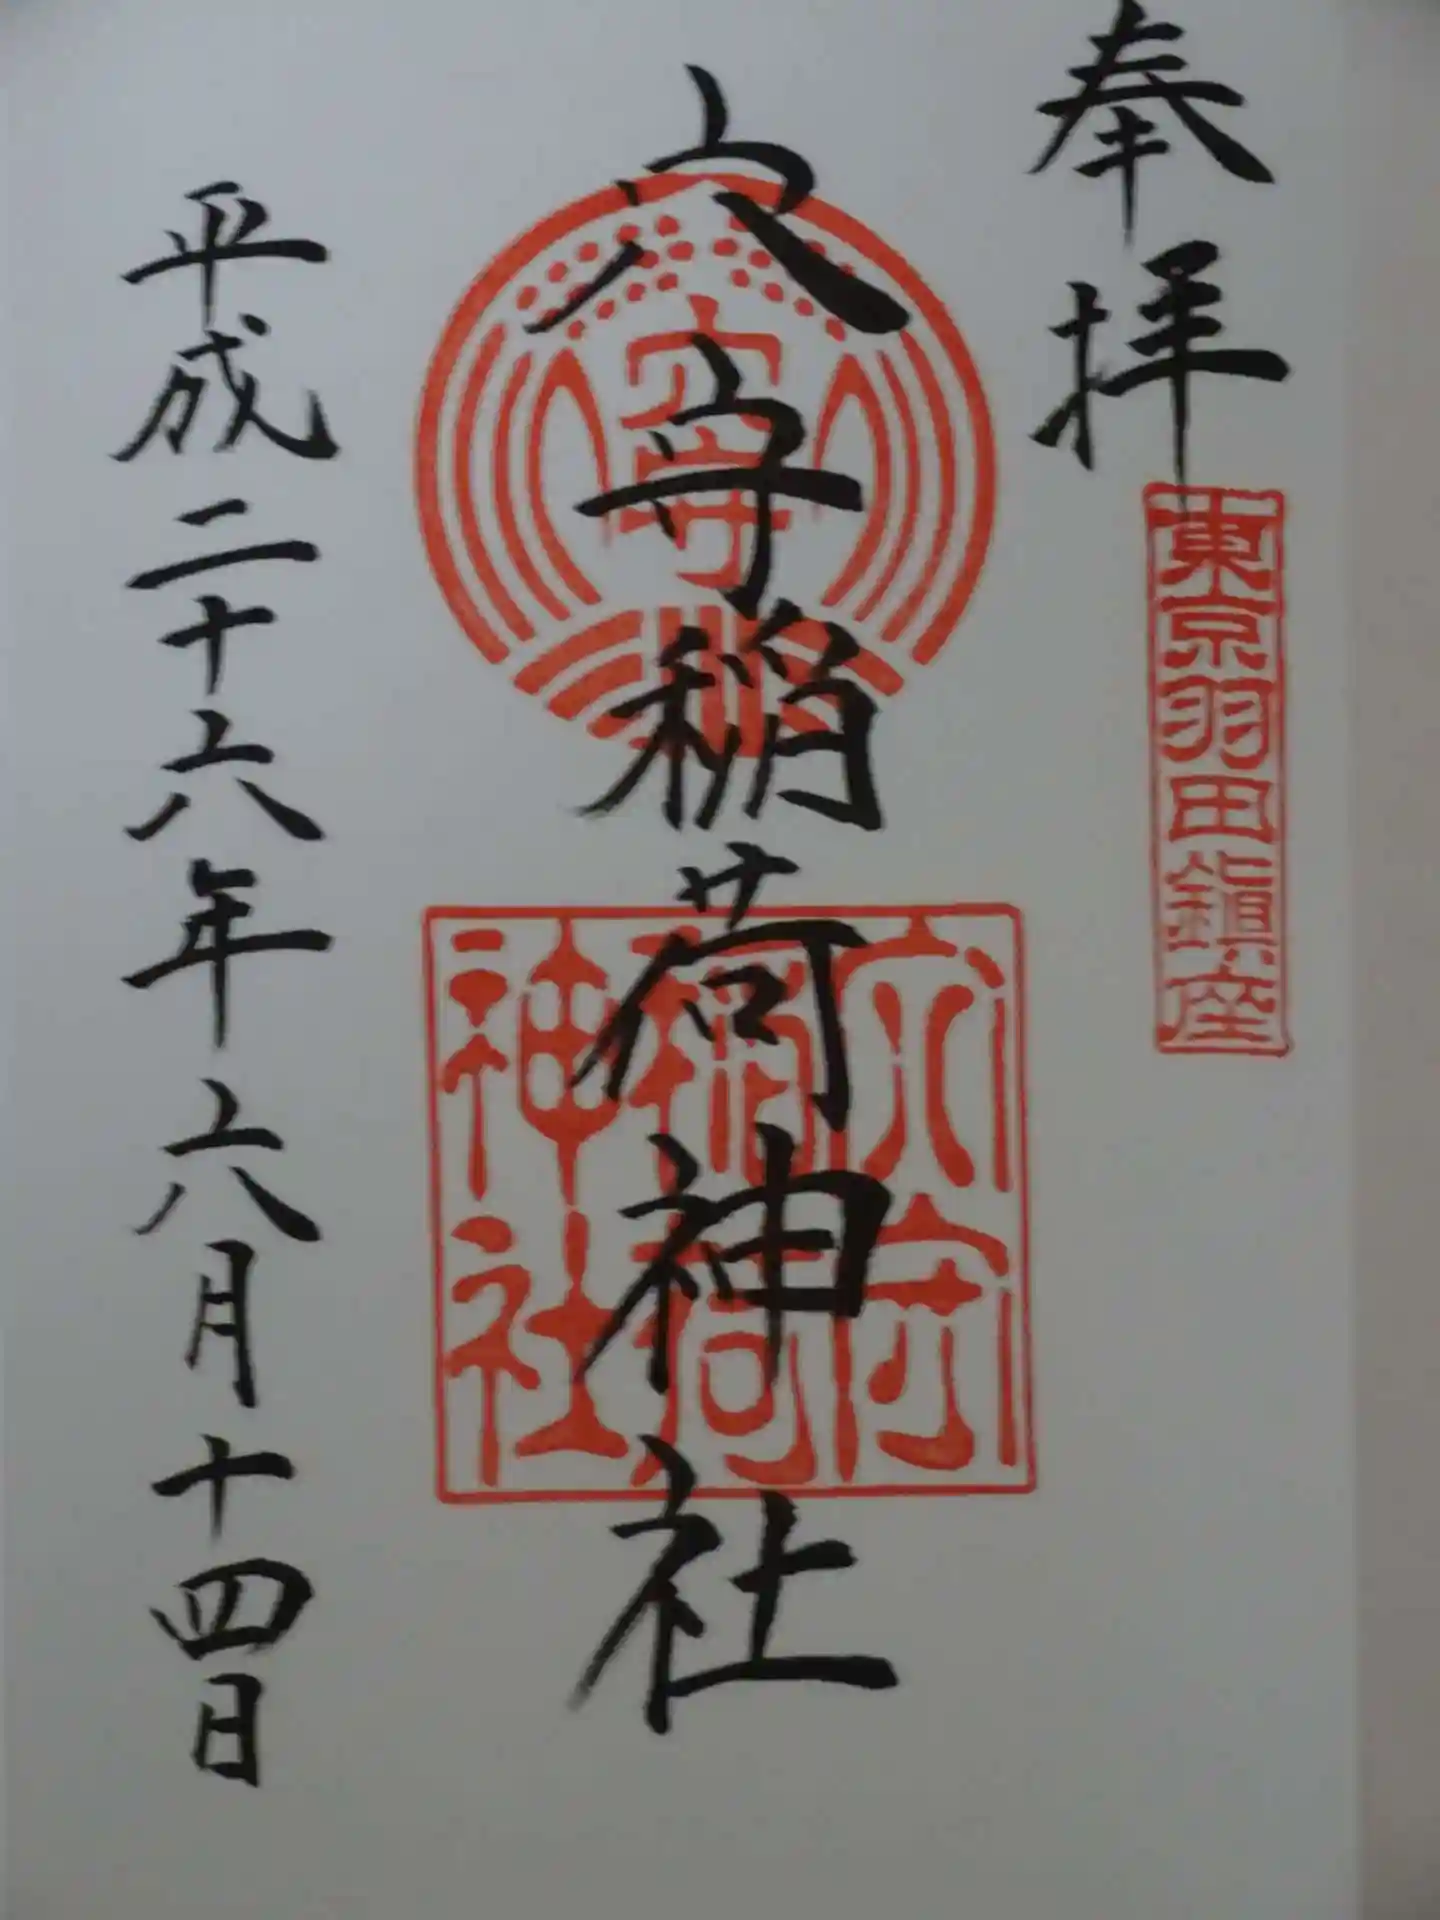 奉拝
東京羽田鎮座
穴守稲荷神社
穴守
穴守
稲荷
神社
平成二十六年六月十四日